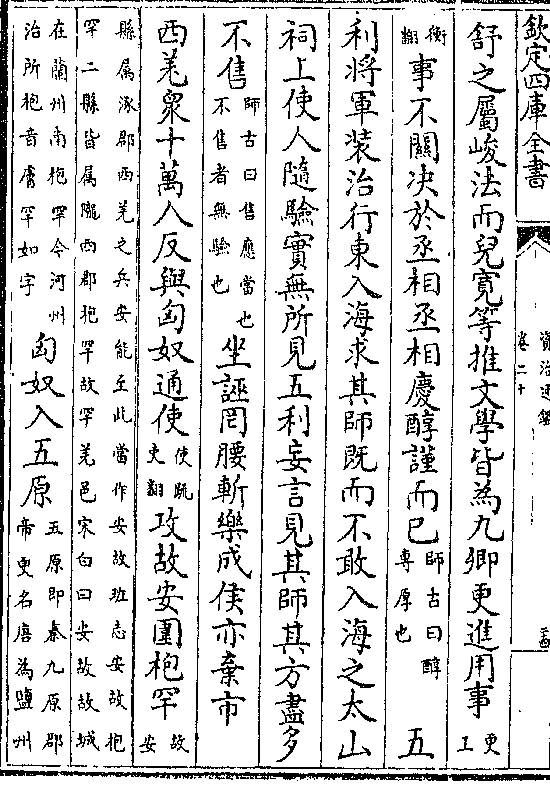 欽定四庫全書
資治通鑑
卷二十
舒之屬峻法而兒寛等推文學皆為九卿更進用事更工
衡翻事不關决於丞相丞相慶醇謹而已師古曰醇專厚也五
利將軍装治行東入海求其師既而不敢入海之太山
祠上使人隨驗實無所見五利妄言見其師其方盡多
不售師古曰售應當也不售者無驗也坐誣罔腰斬樂成侯亦棄市
西羌衆十萬人反與匈奴通使使疏吏翻攻故安圍枹罕故安
縣属涿郡西羌之兵安能至此當作安故班志安故枹
罕二縣皆属隴西郡枹罕故罕羌邑宋白曰安故故城
在蘭州南枹罕今河州治所枹音膚罕如字匈奴入五原五原即秦九原郡帝更名唐為鹽州